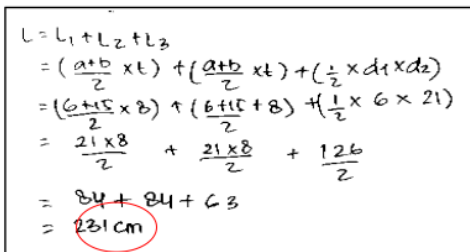 L = L₁ + L₂ + L₃
= (a+b/2 × t) + (a+b/2 × t) + (1/2 × d1 × d2)
= (6+15/2 × 8) + (6+15/2 + 8) + (1/2 × 6 × 21)
= 21 × 8/2 + 21 × 8/2 + 126/2
= 84 + 84 + 63
= 231 cm